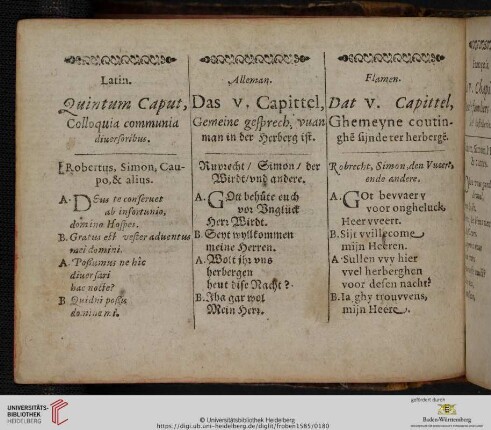 Latin.
Quintum Caput,
Colloquia communia
diuersoribus.
Robertus, Simon, Cau-
po, & alius.
A. DEus te conseruet
ab infortunio,
domine Hospes.
B. Gratus est vester aduentus
mei domini.
A. Possumus ne hic
diuersari
hac nocte?
B. Quidni possis
domine mi.
Alleman.
Das v. Capittel,
Gemeine gesprech, wan
man in der Herberg ist.
Ruprecht / Simon / der
Wirdt / vnd andere.
A. GOtt behüte euch
vor Vnglück
Herr Wirdt.
B. Seyt wyllkommen
meine Herren.
A. Wolt ihr vns
herbergen
heut dise Nacht?
B. Iha gar wol
Mein Herr.
Flamen.
Dat v. Capittel,
Ghemeyne coutin-
ghē sijnde ter herbergē.
Robrecht, Simon, den Vveert,
ende andere.
A. GOt bevvaer v
voor ongheluck,
Heer vveert.
B. Sijt vvillecome
mijn Heeren.
A. Sullen vvy hier
vvel herberghen
voor desen nacht?
B. Ia ghy trouvvens,
mijn Heere.
UNIVERSITÄTS-
BIBLIOTHEK
HEIDELBERG
© Universitätsbibliothek Heidelberg
https://digi.ub.uni-heidelberg.de/diglit/froben1585/0180
gefördert durch
Baden-Württemberg